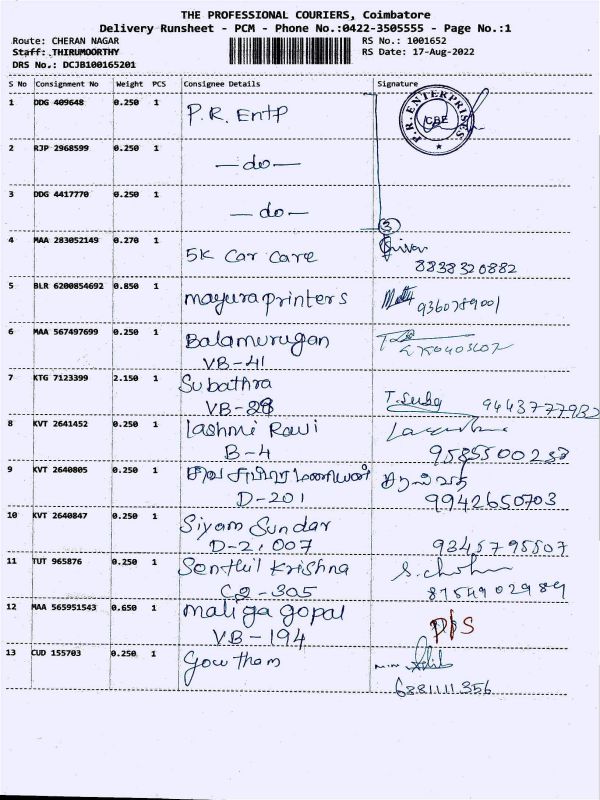 THE PROFESSIONAL COURIERS, Coimbatore
Delivery Runsheet - PCM - Phone No.:0422-3505555 - Page No.:1
Route: CHERAN NAGAR
Staff: THIRUMOORTHY
DRS No.: DCJB100165201
RS No.: 1001652
RS Date: 17-Aug-2022
S No Consignment No Weight PCS Consignee Details Signature
1 DDG 409648 0.250 1 P.R. Entp
P.R. ENTERPRISES CBE
2 RJP 2968599 0.250 1 —do—
3 DDG 4417770 0.250 1 —do—
3
4 MAA 283052149 0.270 1 5K Car care
8838320882
5 BLR 6200854692 0.850 1 mayura printers 9360789001
6 MAA 567497699 0.250 1 Balamurugan
VB-41
7 KTG 7123399 2.150 1 Subathra
VB-28 T. Suba 9443777932
8 KVT 2641452 0.250 1 lashmi Ravi
B-4 9585500238
9 KVT 2640805 0.250 1
D-201 9942650703
10 KVT 2640847 0.250 1 Siyam Sundar
D-2, 007 9345795507
11 TUT 965876 0.250 1 Senthil Krishna
C2-305 8754902989
12 MAA 565951543 0.650 1 maliga gopal
VB-194
13 CUD 155703 0.250 1 Gowtham
6881111356